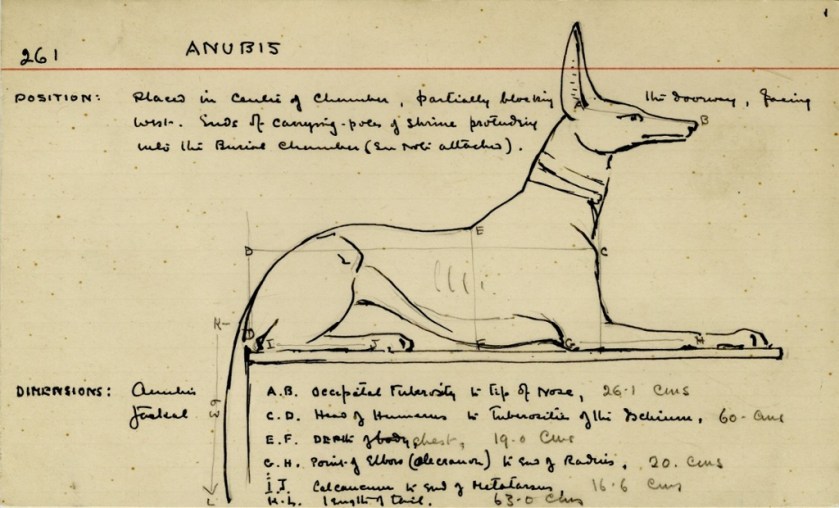 1
261 ANUBIS
POSITION: Placed in centre of Chamber, partially blocking the doorway, facing
west. Ends of carrying-poles of shrine protruding
into the Burial Chamber (See Note attached).
A
B
E
D
C
K
D I J F G H
63.
L
DIMENSIONS: Anubis A.B. Occipital Tuberosity to tip of Nose, 26.1 Cms
Jackal C.D. Head of Humerus to Tuberosities of the Ischium, 60. Cms
E.F. DEPTH of body chest, 19.0 Cms
G.H. Point of Elbow (olecranon) to end of Radius, 20. Cms
I.J. Calcaneum to end of Metatarsus 16.6 Cms
K.L. Length of tail. 63.0 Cms